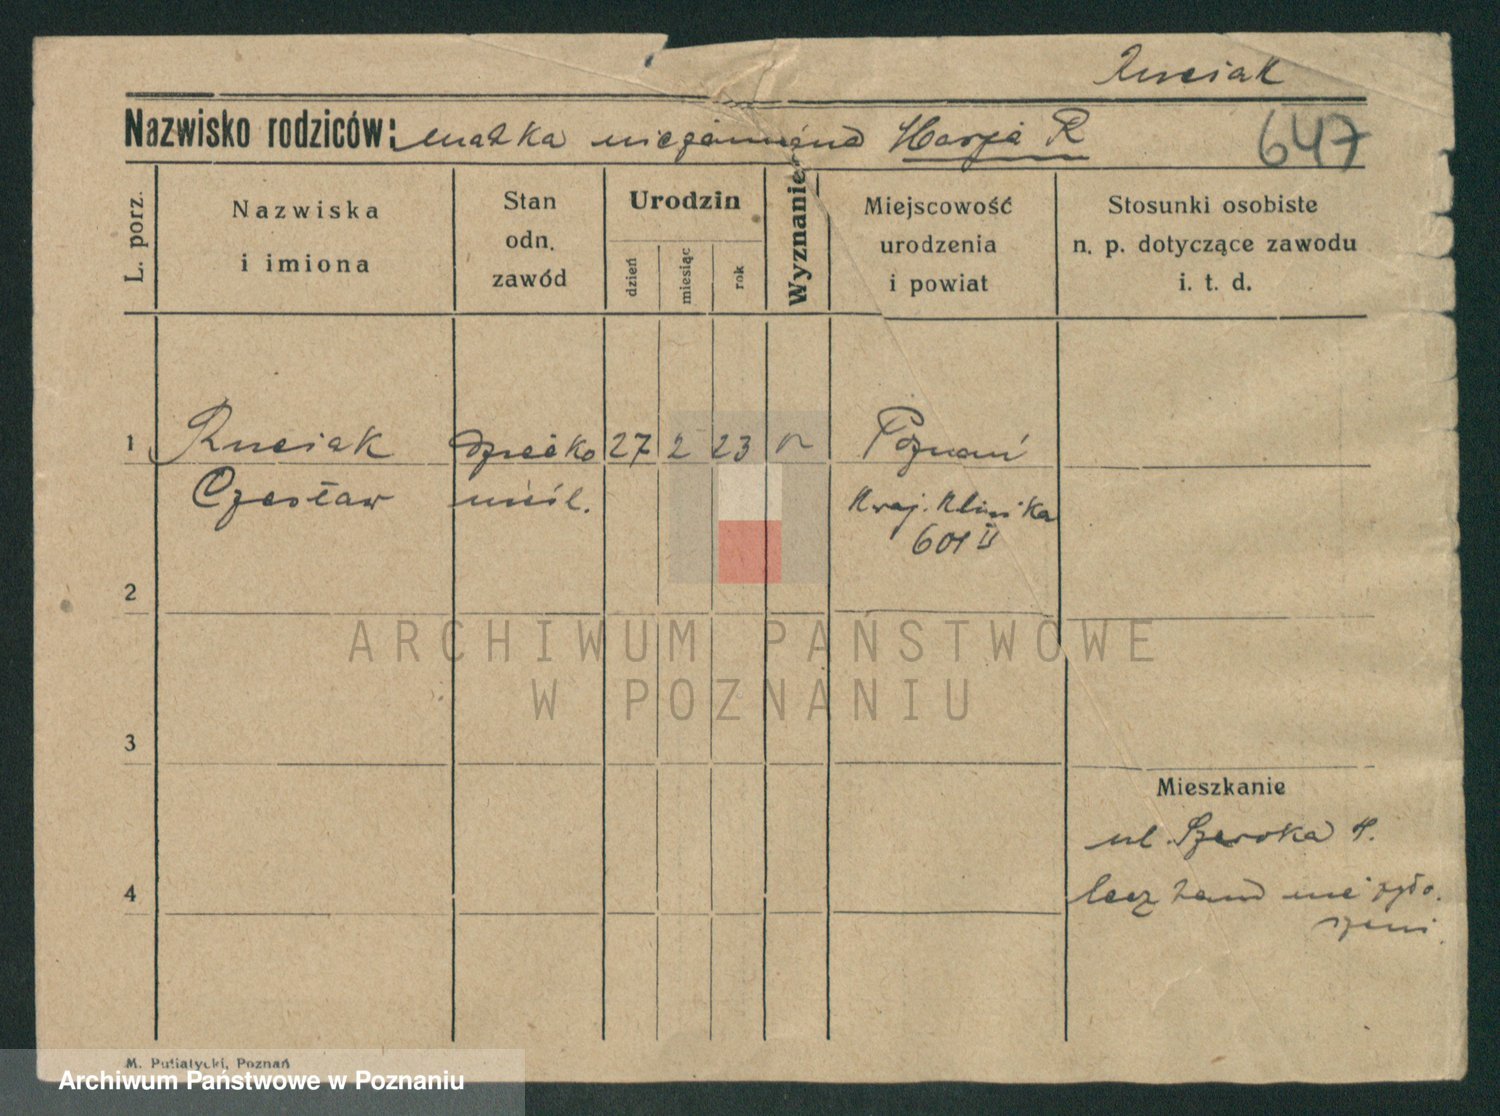 Rusiak
Nazwisko rodziców: matka niezamężna Marja R
647
L. porz.
Nazwiska
i imiona
Stan
odn.
zawód
Urodzin
dzień
miesiąc
rok
Wyznanie
Miejscowość
urodzenia
i powiat
Stosunki osobiste
n. p. dotyczące zawodu
i. t. d.
1 Rusiak dziecko 27 2 23 Poznań
Czesław nieśl. Kraj. Klinika
601 II
2
3
Mieszkanie
ul. Szeroka
4
lecz tam nie zgło-
szeni
M. Putiatycki, Poznań
ARCHIWUM PAŃSTWOWE
W POZNANIU
Archiwum Państwowe w Poznaniu